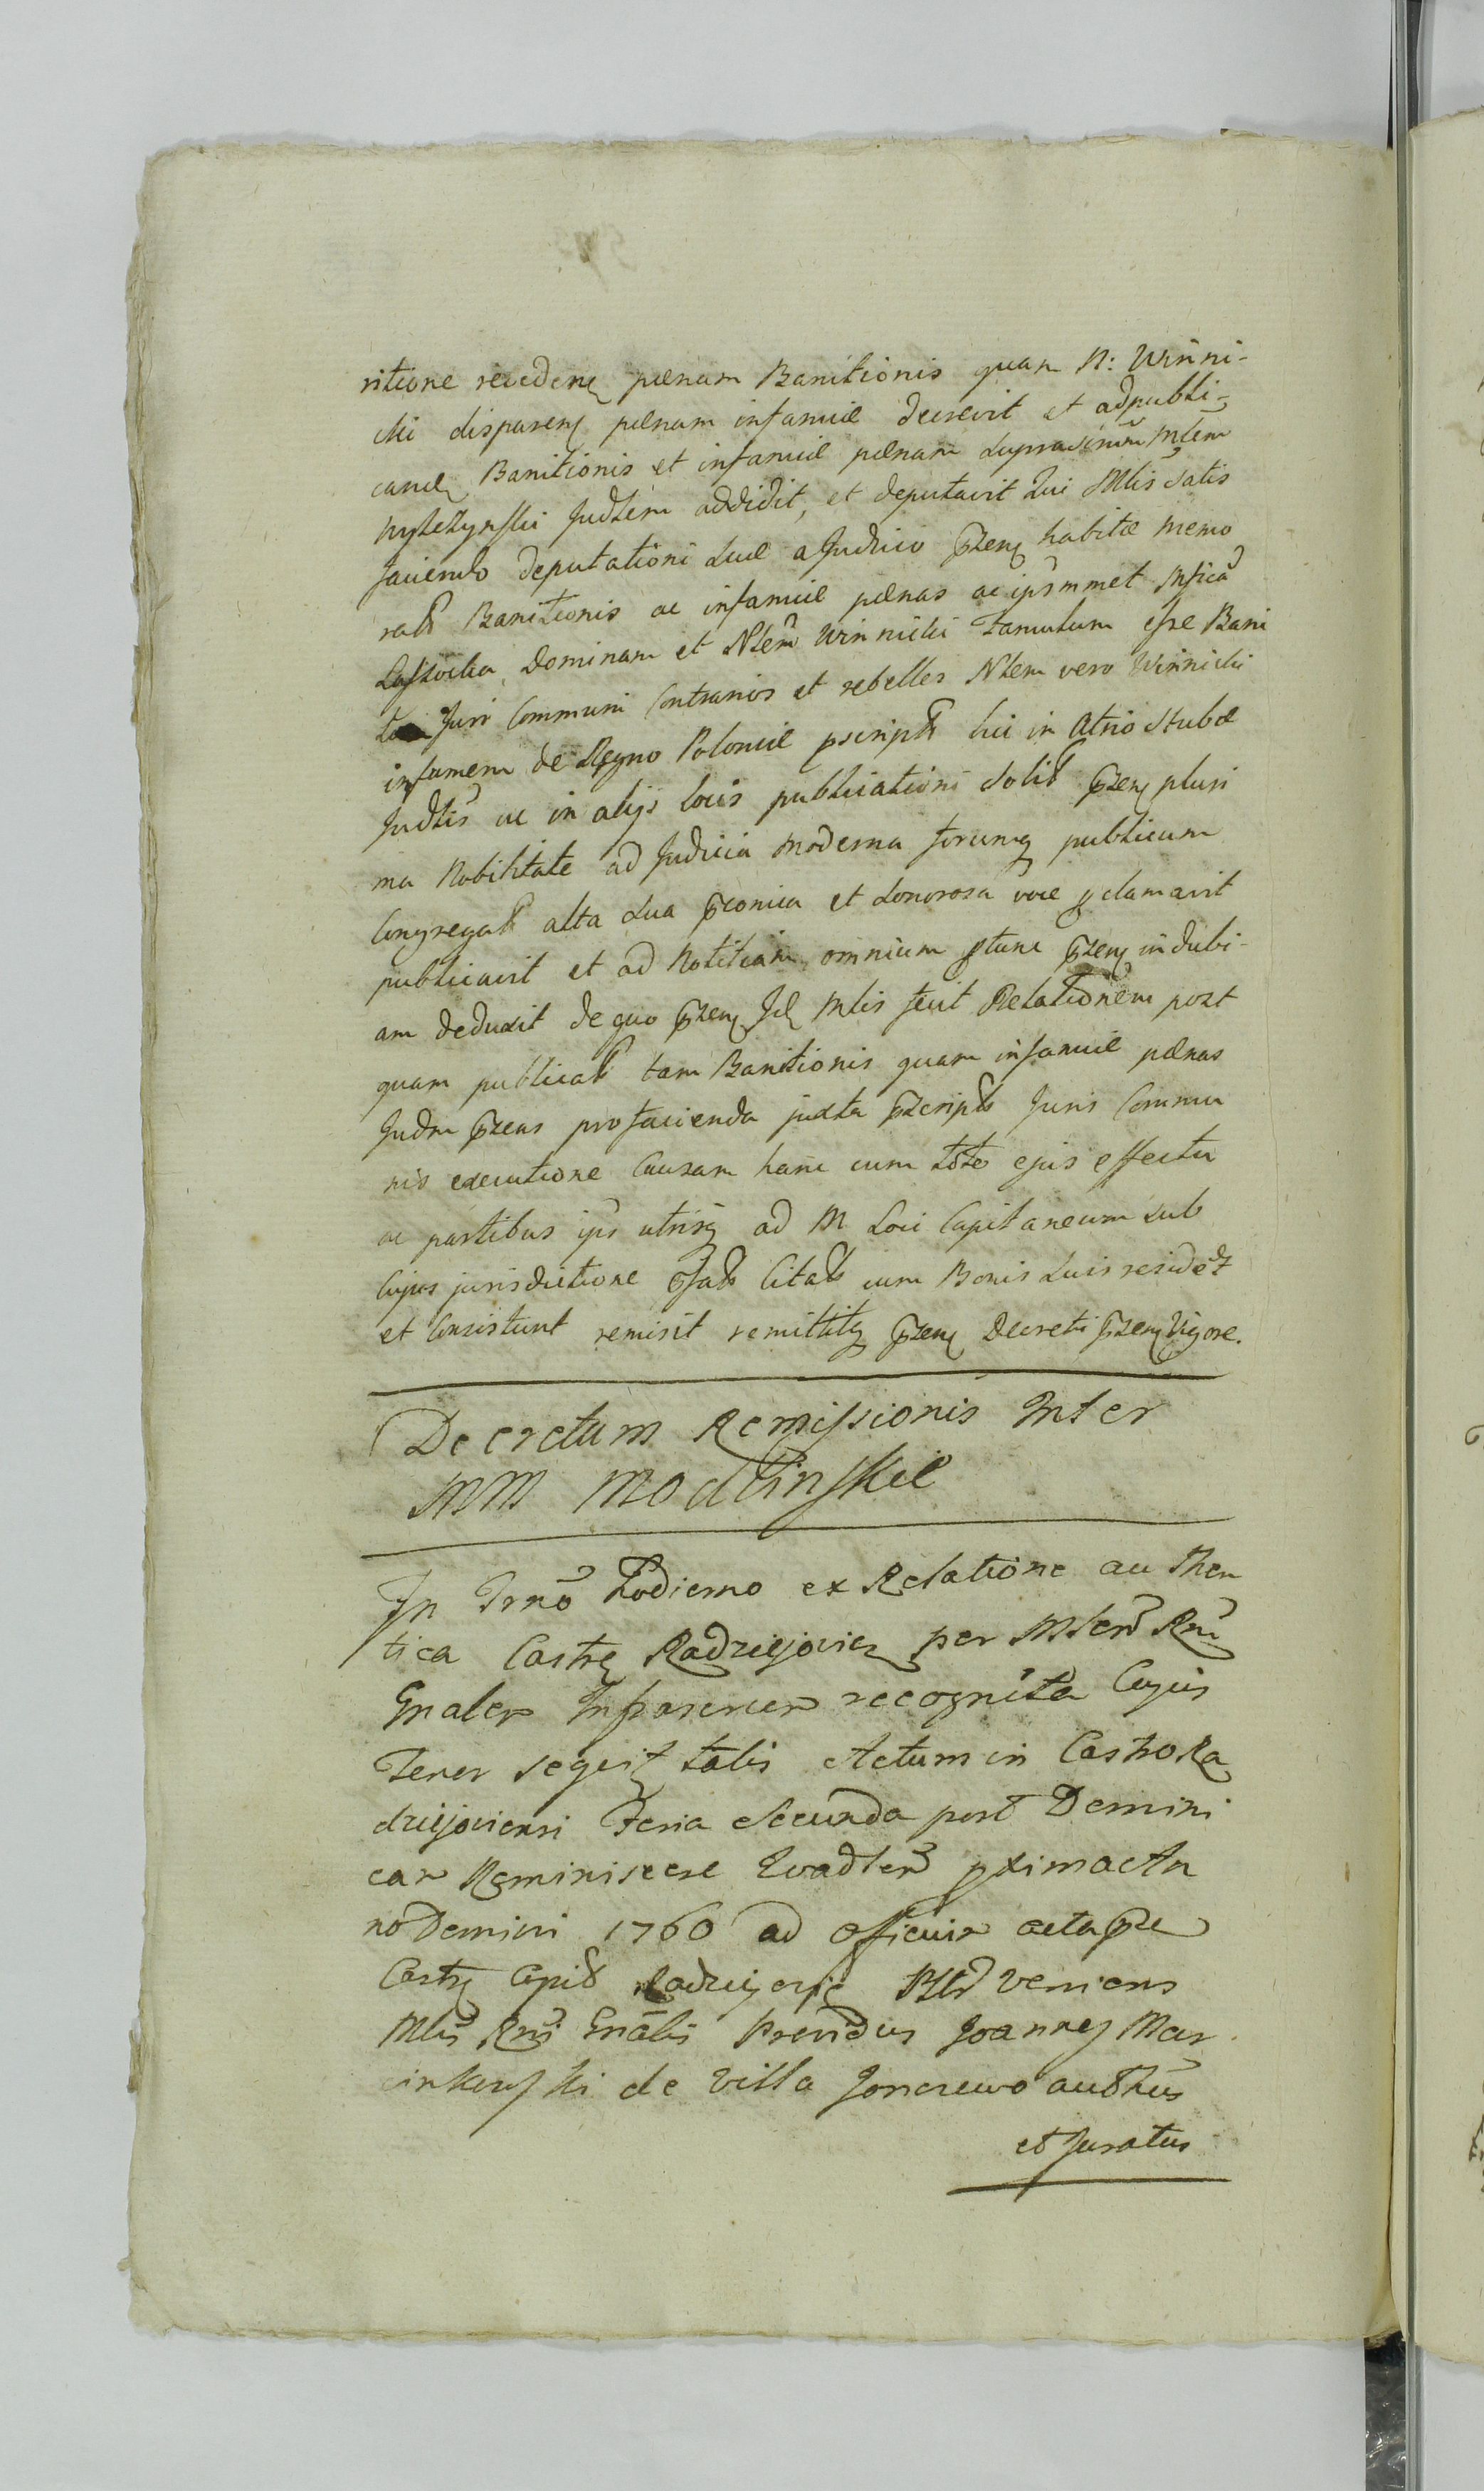 ritione recedenę pœnam Banitionis quam N: Winni-
cki disparenę pœnam infamiæ decrevit et ad publi-
candę Banitionis et infamiæ pœnam Mlem
Judlem addidit, et deputavit Qui Mlis satis
faciendo deputationi suæ a Judicio pzenę habitæ memo
ratt Banitionis ac infamiæ pœnas ac ipsmmet Mficã
Dominam et Nlem Winnicki Famulum esse Bani
tos Juri Communi Contrarios et rebelles Nlem vero Winnicki
infamem de Regno Poloniæ pscriptt hic in Atrio Stubæ
Judlis ac in alijs locis publicationi solitt pzenę pluri
ma Nobilitate ad Judicia moderna forumq publicum
Congregatt alta sua pconica et sonorosa voce pclamavit
publicavit et ad Notitiam omnium ptunc pzenę indubi-
am deduxit de quo pzenę Jdę Mlis fecit Relationem post
quam publicatt tam Banitionis quam infamiæ pœnas
Judm pzens pro facienda juxta pzscriptt Juris Commu
nis executione Causam hanc cum toto ejus effectu
ac partibus ips utrisq ad M Loci Capitaneum sub
Cujus jurisdictione pfatt Citatt cum Bonis suis resident
et Consistunt remisit remittitq pzenę Decreti pzenę Vigore.
Decretum Remissionis Inter
MM Modlinskie
In Trno hodierno ex Relatione authen
tica Castrę Radziejovien per Mlem Rni
Gnalem Infrascrien recognita Cujus
Tenor sequitę talis Actum in Castro Ra
dziejoviensi Feria Secunda post Domini
cam Reminiscere Quadlem pxima An
no Domini 1760 ad officium acta pze
Castrę Capitt Radziejovię Psler veniens
Mlis Rni Gnalis Providus Joannes Mar
cinkowski de Villa Jonczewo authus
et Juratus